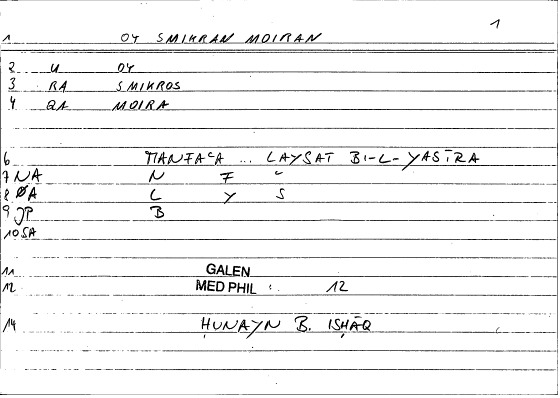 1
1 OY SMIKRAN MOIRAN
2 U OY
3 RA SMIKROS
4 QA MOIRA
6 MANFAʿA ... LAYSAT BI-L-YASĪRA
7 NA N F ʿ
8 ØA L Y S
9 JP B
10 SA
11 GALEN
12 MED PHIL 12
14 ḤUNAYN B. ISḤĀQ